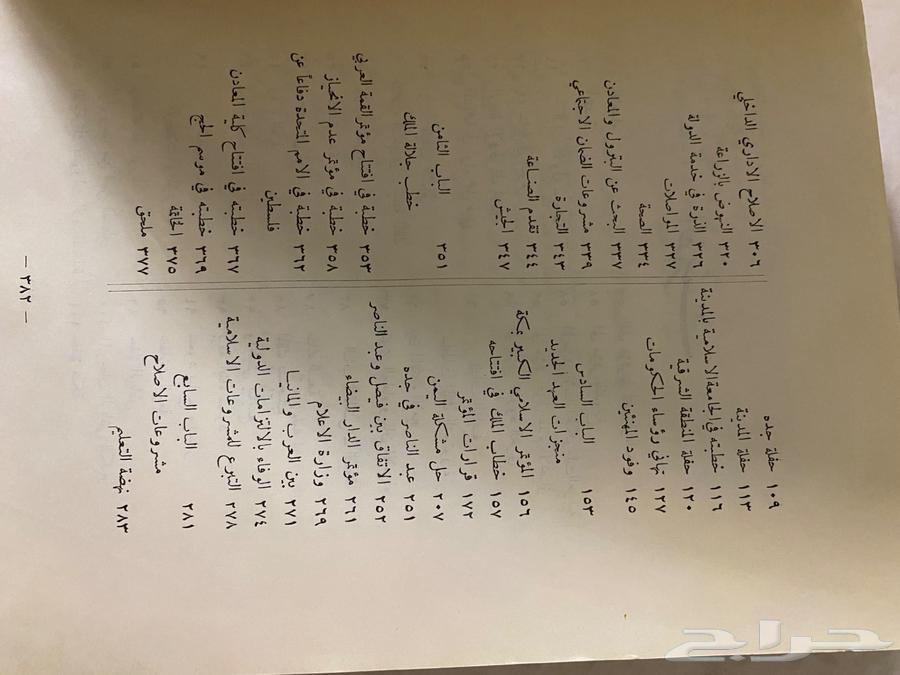 ١٠٩ حفلة جده
١١٣ حفلة المدنية
١١٦ خطبته في الجامعة الاسلامية بالمدينة
١٢٠ حفلة المنطقة الشرقية
١٢٧ تهاني رؤساء الحكومات
١٤٥ وفود المهنئين
الباب السادس
١٥٣ منجزات العهد الجديد
١٥٦ المؤتمر الاسلامي الكبير بمكة
١٥٧ خطاب الملك في افتتاحه
١٧٢ قرارات المؤتمر
٢٠٧ حل مشكلة اليمن
٢٥١ عبد الناصر في جده
٢٥٢ الاتفاق بين فيصل وعبد الناصر
٢٦١ مؤتمر الدار البيضاء
٢٦٩ وزارة الاعلام
٢٧١ بين العرب والمانيا
٢٧٤ الوفاء بالالتزامات الدولية
٢٧٨ التبرع للمشروعات الاسلامية
الباب السابع
٢٨١ مشروعات الاصلاح
٢٨٣ نهضة التعليم
٣٠٦ الاصلاح الاداري الداخلي
٣٢٠ النهوض بالزراعة
٣٢٦ الذرة في خدمة الدولة
٣٢٧ المواصلات
٣٣٤ الصحة
٣٣٧ البحث عن البترول والمعادن
٣٣٩ مشروعات الضمان الاجتماعي
٣٤٣ التجارة
٣٤٤ تقدم الصناعة
٣٤٧ الجيش
الباب الثامن
٣٥١ خطب جلالة الملك
٣٥٣ خطبة في افتتاح مؤتمر القمة العربي
٣٥٨ خطبة في مؤتمر عدم الانحياز
٣٦٢ خطبة في الامم المتحدة دفاعاً عن
فلسطين
٣٦٧ خطبته في افتتاح كلية المعادن
٣٦٩ خطبته في موسم الحج
٣٧٥ الخاتمة
٣٧٧ ملحق
— ٣٨٢ —
حراج